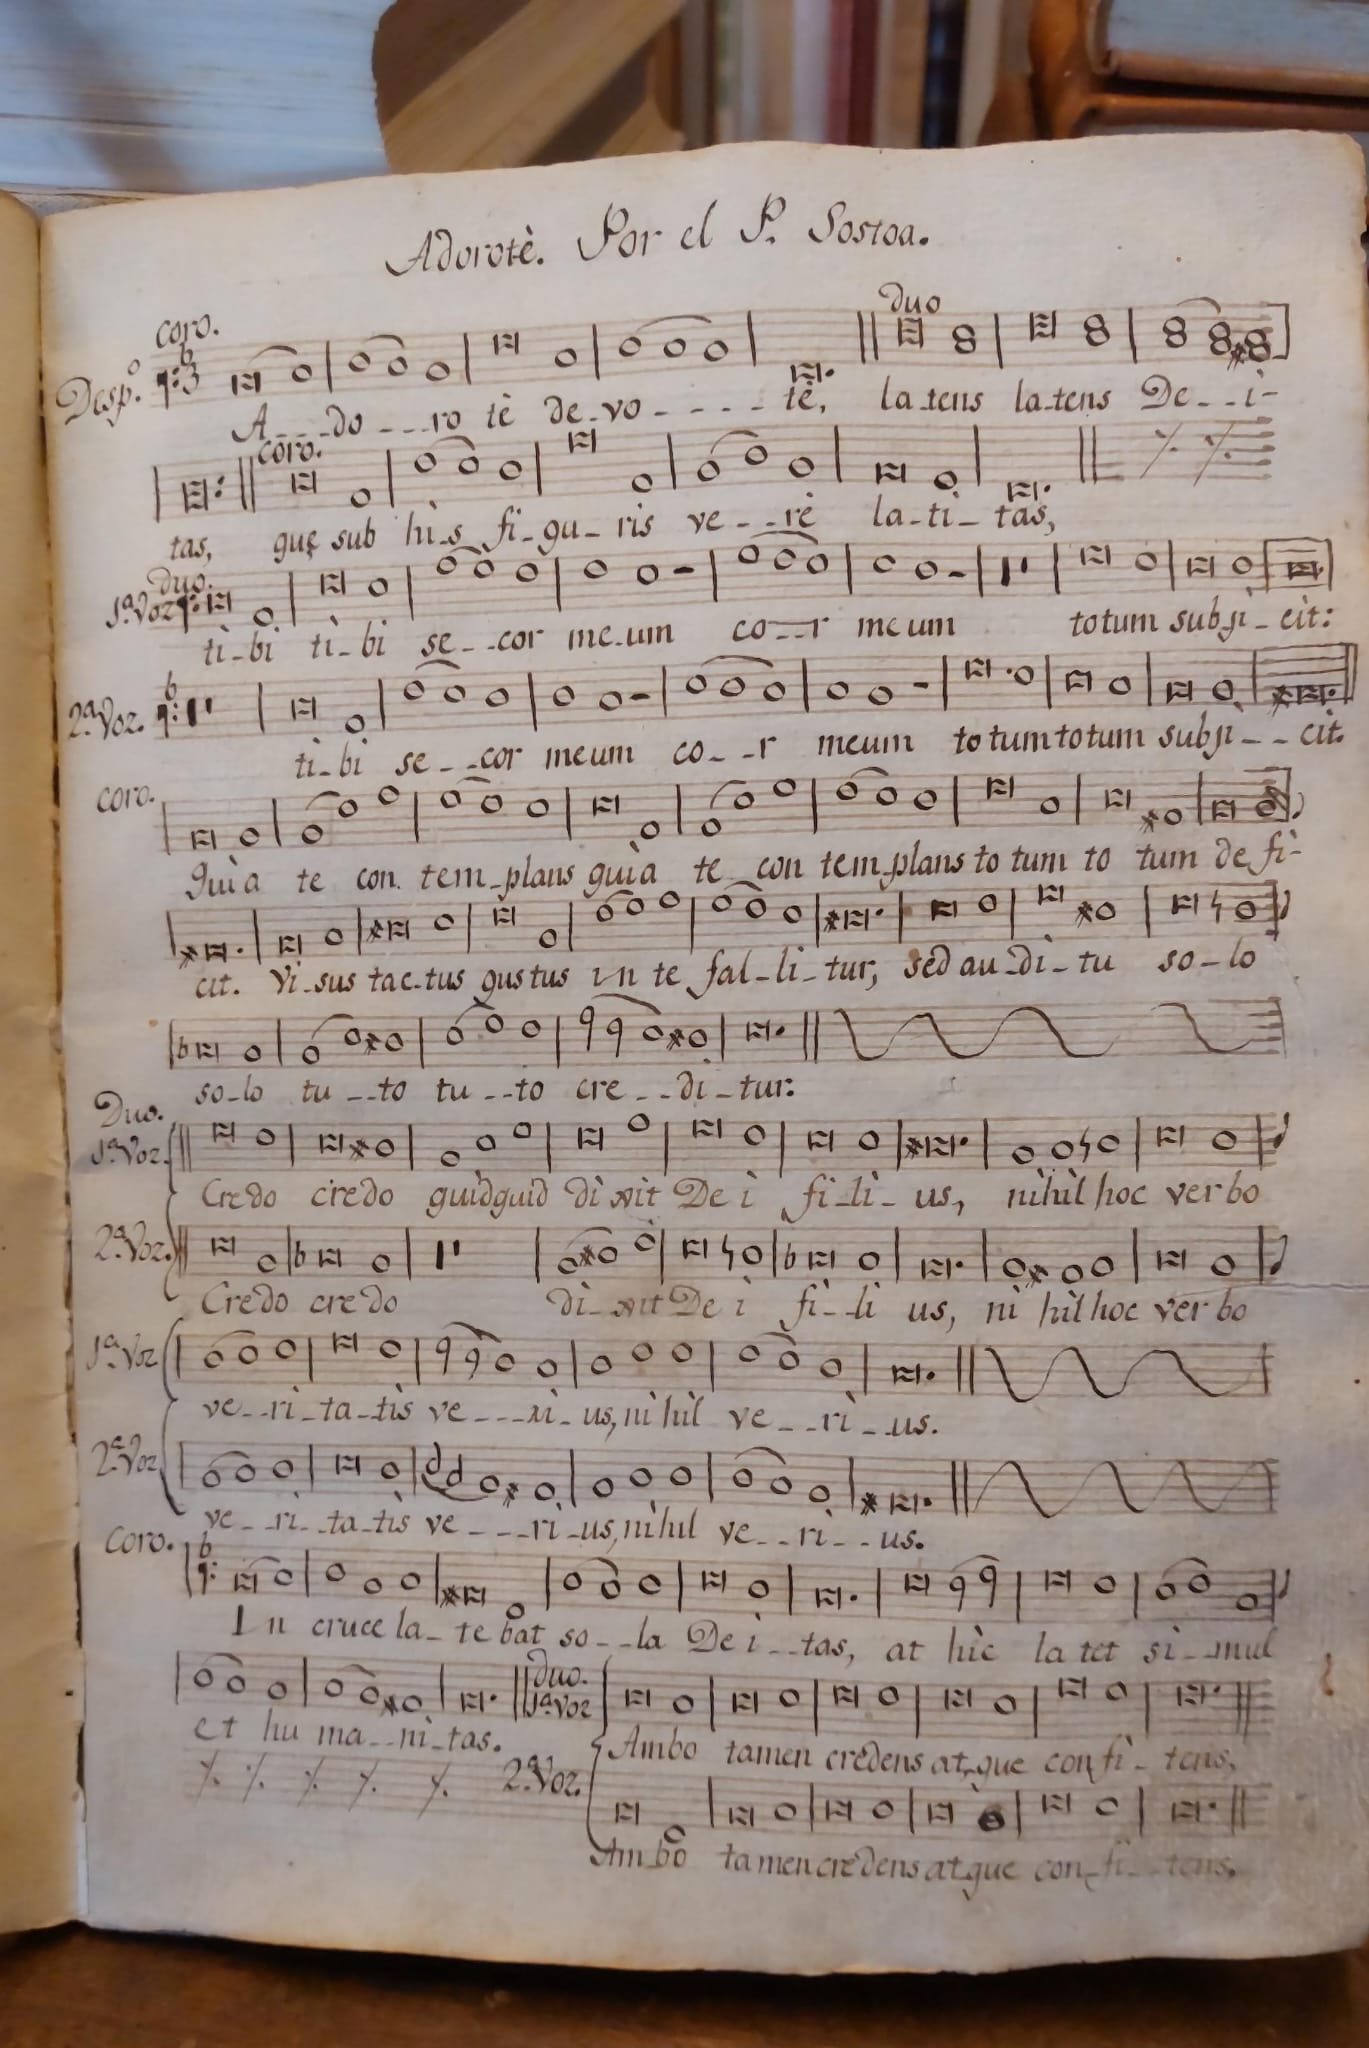 Adorotè. Por el P. Sostoa.
coro. duo
Desp.º A---do---ro tè de-vo----tè, la-tens la-tens De--i-
coro.
tas, quę sub hì-s fi-gu-ris ve--rè la-ti-tas,
duo.
1ª Voz tì-bi tì-bi se--cor me-um co--r meum totum subji-cit:
2ª Voz. tì-bi se--cor meum co--r meum totum totum subji--cit.
coro.
Quia te con tem-plans quìa te con tem-plans to tum to tum de fi-
cit. Vi-sus tac-tus gustus in te fal-li-tur, sed au-di-tu so-lo
so-lo tu--to tu--to cre--di-tur:
Duo.
1ª Voz.
Credo credo quidquid dì xit De i fi-li-us, nìhìl hoc verbo
2ª Voz.
Credo credo di-xit De i fi-li us, ni hìl hoc verbo
1ª Voz
ve--ri-ta-tìs ve---ri-us, nìhìl ve--rì--us.
2ª Voz
ve--ri-ta-tìs ve---rì-us, nìhìl ve--rì--us.
coro.
In cruce la-te bat so--la De i--tas, at hìc la tet si--mul
duo.
1ª Voz
et hu ma--ni-tas. Ambo tamen credens at-que con fi-tens,
2ª Voz.
Am-bo tamen credens at-que con-fi--tens.